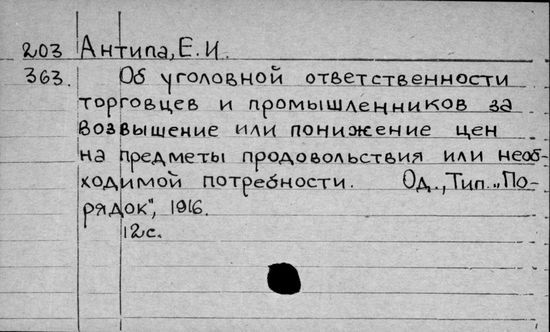 203 Антипа, Е. И.
363. Об уголовной ответственности
торговцев и промышленников за
возвышение или понижение цен
на предметы продовольствия или необ-
ходимой потребности. Од., Тип. „По-
рядок", 1916.
12с.